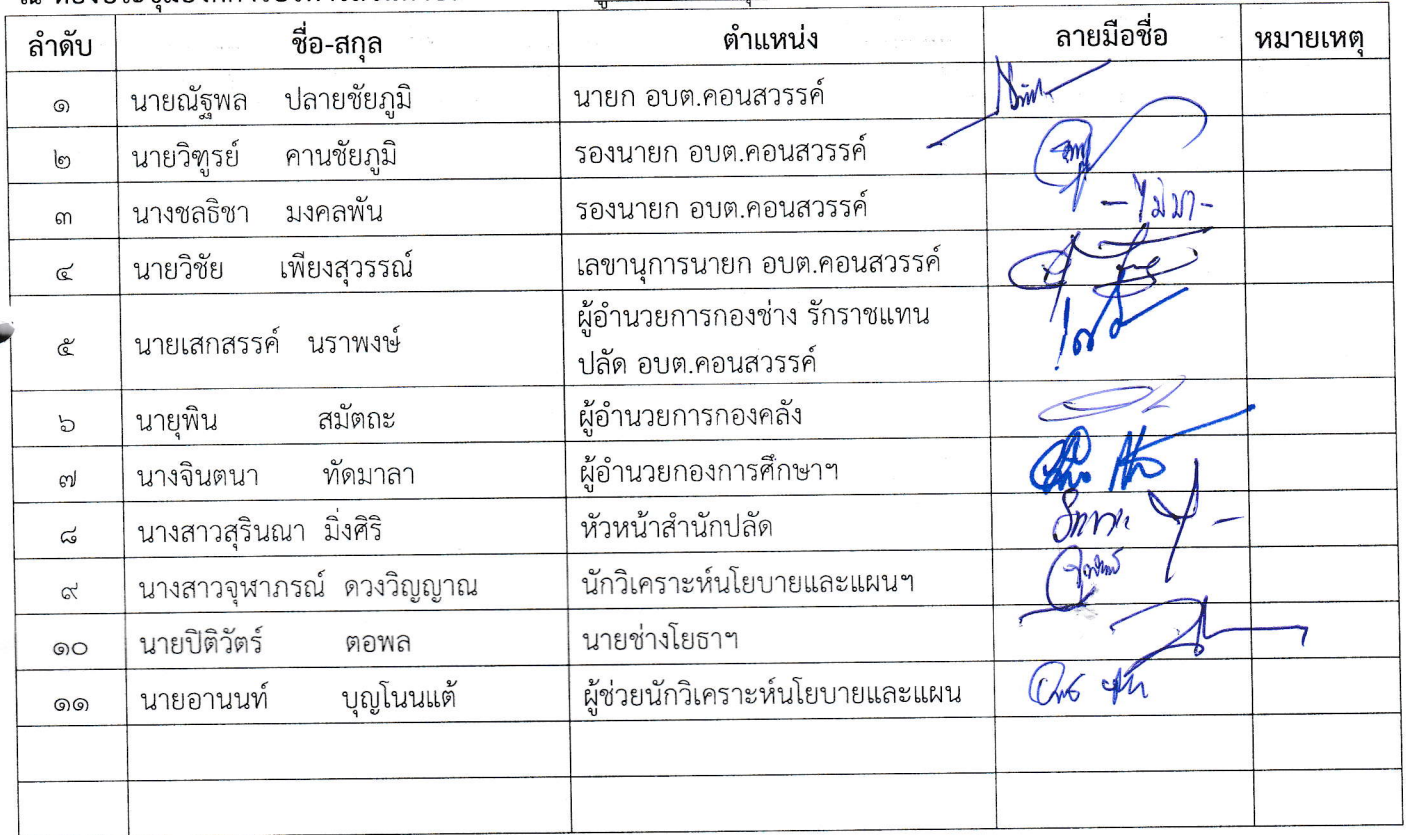 ลำดับ ชื่อ-สกุล ตำแหน่ง ลายมือชื่อ หมายเหตุ
๑ นายณัฐพล ปลายชัยภูมิ นายก อบต.คอนสวรรค์
๒ นายวิฑูรย์ คานชัยภูมิ รองนายก อบต.คอนสวรรค์
๓ นางชลธิชา มงคลพัน รองนายก อบต.คอนสวรรค์ -ไม่มา-
๔ นายวิชัย เพียงสุวรรณ์ เลขานุการนายก อบต.คอนสวรรค์
๕ นายเสกสรรค์ นราพงษ์ ผู้อำนวยการกองช่าง รักราชแทน
ปลัด อบต.คอนสวรรค์
๖ นายุพิน สมัตถะ ผู้อำนวยการกองคลัง
๗ นางจินตนา ทัดมาลา ผู้อำนวยกองการศึกษาฯ
๘ นางสาวสุรินณา มิ่งศิริ หัวหน้าสำนักปลัด
๙ นางสาวจุฬาภรณ์ ดวงวิญญาณ นักวิเคราะห์นโยบายและแผนฯ
๑๐ นายปิติวัตร์ ตอพล นายช่างโยธาฯ
๑๑ นายอานนท์ บุญโนนแต้ ผู้ช่วยนักวิเคราะห์นโยบายและแผน